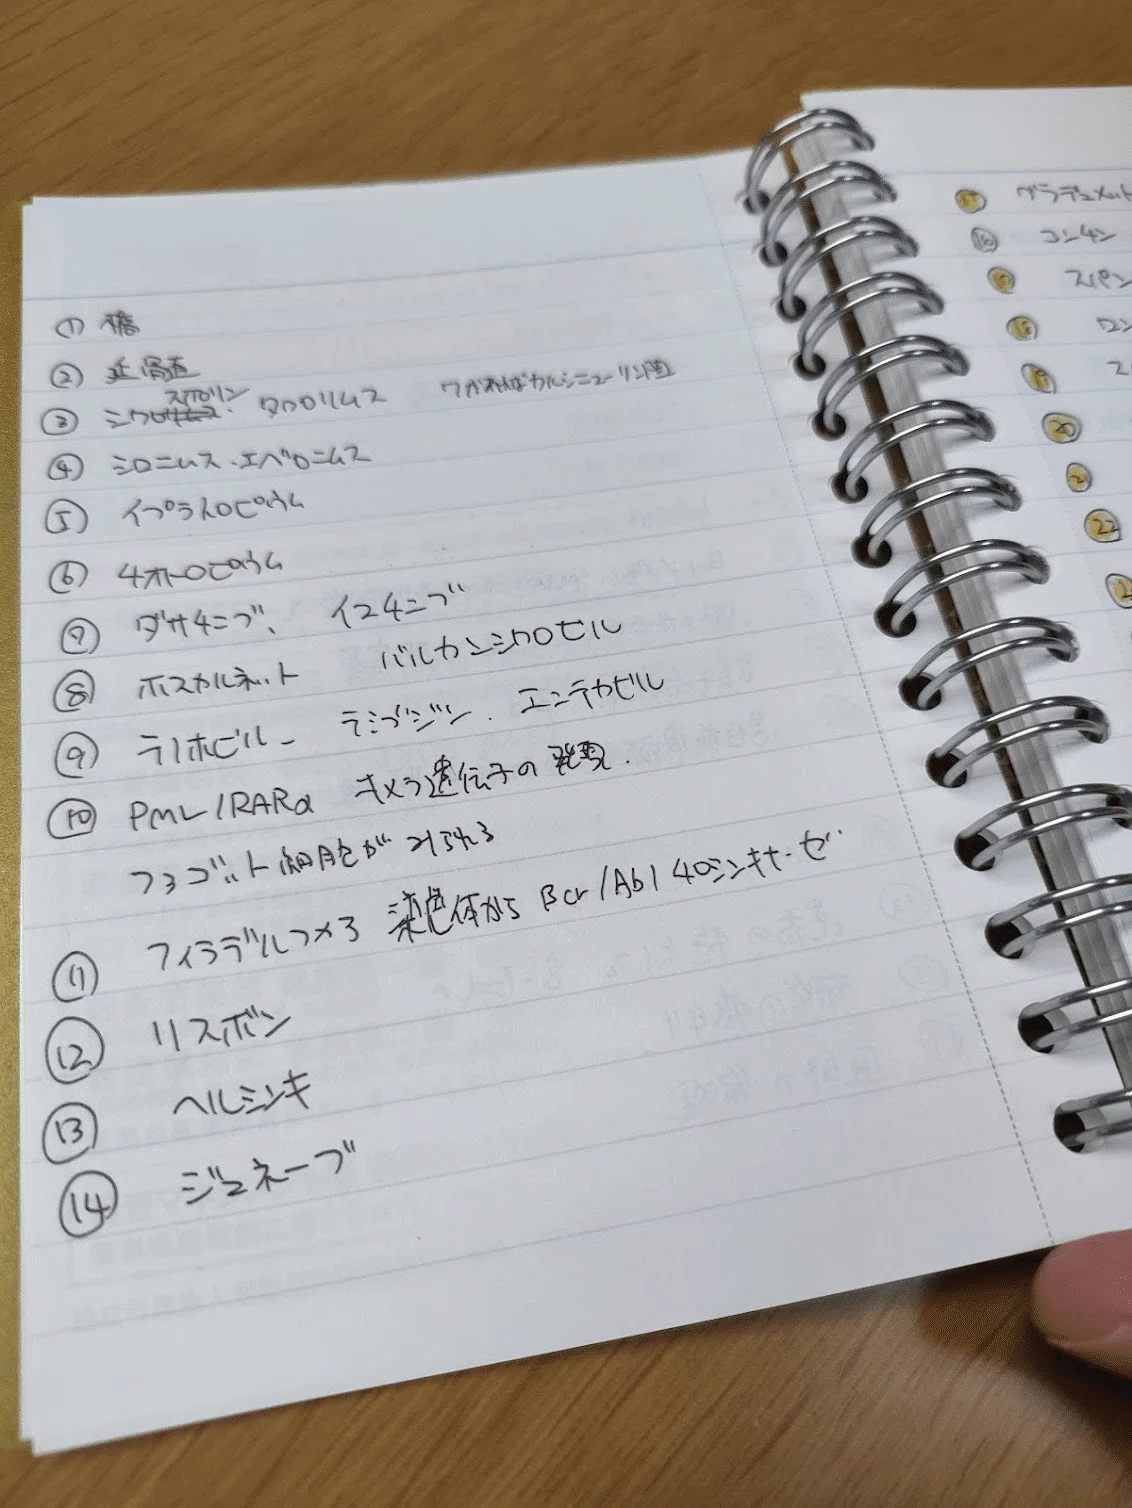 ① 橋
② 延髄
③ シクロスポリン・タクロリムス ワかればカルシニューリン
④ シロニムス・エベロニムス
⑤ イプラトロピウム
⑥ チオトロピウム
⑦ ダサチニブ、イマチニブ
⑧ ホスカルネット バルガンシクロビル
⑨ ラノホビル ラミブジン、エンテカビル
⑩ PML/RARα キメラ遺伝子の発現.
ファゴット細胞がみられる
⑪ フィラデルフィア 染色体から Bcr/Abl チロシンキナーゼ
⑫ リスボン
⑬ ヘルシンキ
⑭ ジュネーブ
グラデュメット
⑯ コンチン
スパン
⑱ ワン
⑲ ス
⑳
22